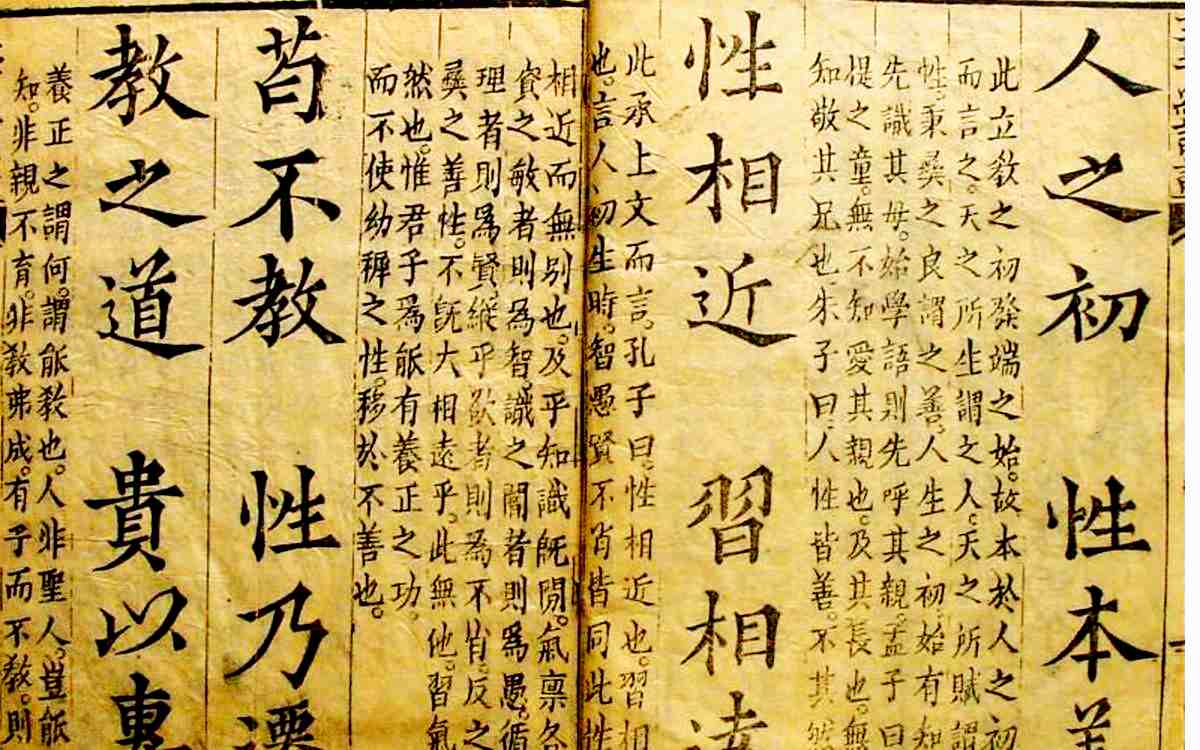 人之初　性本善
此立教之初發端之始。故本於人之初
而言之。天之所生謂之人。天之所賦謂
性。秉彝之良謂之善。人生之初。始有知
先識其母。始學語則先呼其親。孟子曰
提之童。無不知愛其親也。及其長也。無
知敬其兄也。朱子曰。人性皆善。不其然
性相近　習相遠
此承上文而言。孔子曰。性相近也。習相
也。言人初生時。智愚賢不肖皆同此性
相近而無別也。及乎知識既開。氣稟各
資之敏者則為智。識之闇者則爲愚。循
理者則爲賢。縱乎欲者則爲不肖。反之
彝之善性。不旣大相遠乎。此無他。習氣
然也。惟君子爲能有養正之功。
而不使幼穉之性。移於不善也。
苟不教　性乃遷
教之道　貴以專
養正之謂何。謂能教也。人非聖人。豈能
知。非親不育。非教弗成。有子而不教。則